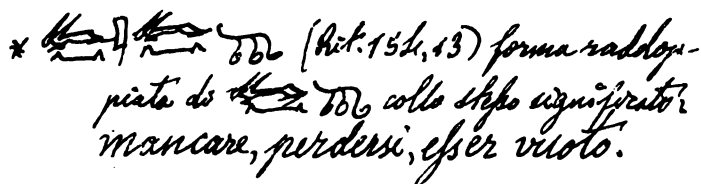 * (Rit. 154, 13) forma raddop-
piata di collo stesso significato:
mancare, perdersi, esser vuoto.